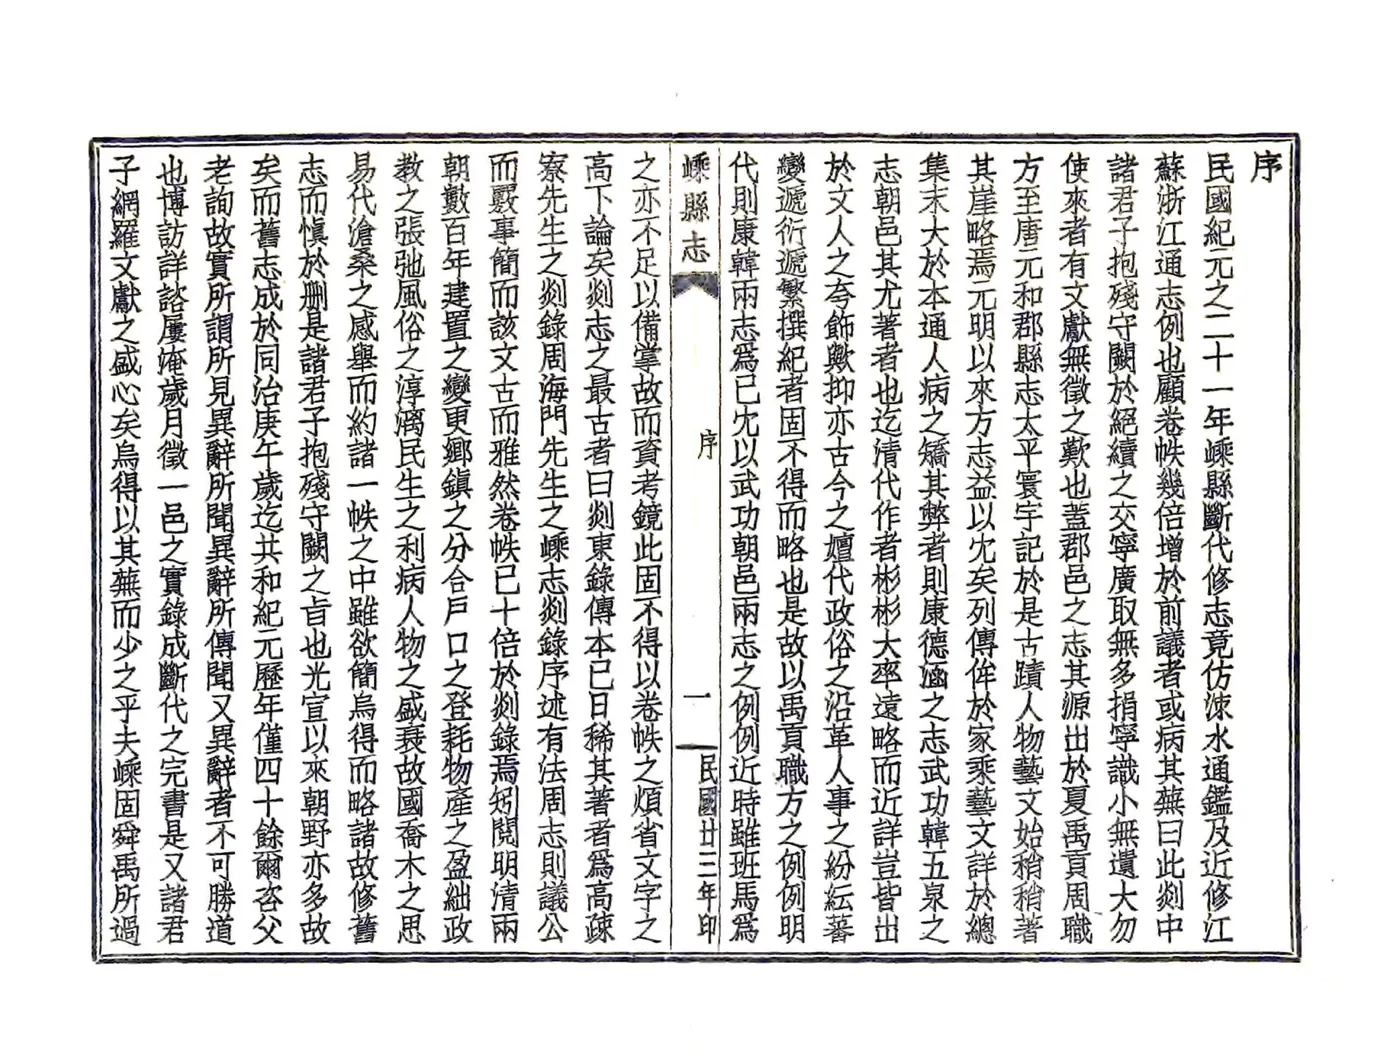 序
民國紀元之二十一年嵊縣斷代修志竟仿涑水通鑑及近修江
蘇浙江通志例也顧卷帙幾倍增於前議者或病其蕪曰此剡中
諸君子抱殘守闕於絕續之交寧廣取無多捐寧識小無遺大勿
使來者有文獻無徵之歎也蓋郡邑之志其源出於夏禹貢周職
方至唐元和郡縣志太平寰宇記於是古蹟人物藝文始稍稍著
其崖略焉元明以來方志益以尨矣列傳侔於家乘藝文詳於總
集末大於本通人病之矯其弊者則康德涵之志武功韓五泉之
志朝邑其尤著者也迄清代作者彬彬大率遠略而近詳豈皆出
於文人之夸飾歟抑亦古今之嬗代政俗之沿革人事之紛紜蕃
變遞衍遞繁撰紀者固不得而略也是故以禹貢職方之例例明
代則康韓兩志爲已尨以武功朝邑兩志之例例近時雖班馬爲
嵊縣志
序
一
民國廿三年印
之亦不足以備掌故而資考鏡此固不得以卷帙之煩省文字之
高下論矣剡志之最古者曰剡東錄傳本已日稀其著者爲高疎
寮先生之剡錄周海門先生之嵊志剡錄序述有法周志則議公
而覈事簡而該文古而雅然卷帙已十倍於剡錄焉矧閱明清兩
朝數百年建置之變更鄉鎮之分合戶口之登耗物產之盈絀政
教之張弛風俗之淳漓民生之利病人物之盛衰故國喬木之思
易代滄桑之感舉而約諸一帙之中雖欲簡烏得而略諸故修舊
志而愼於刪是諸君子抱殘守闕之旨也光宣以來朝野亦多故
矣而舊志成於同治庚午歲迄共和紀元歷年僅四十餘爾咨父
老詢故實所謂所見異辭所聞異辭所傳聞又異辭者不可勝道
也博訪詳諮屢淹歲月徵一邑之實錄成斷代之完書是又諸君
子網羅文獻之盛心矣烏得以其蕪而少之乎夫嵊固舜禹所過